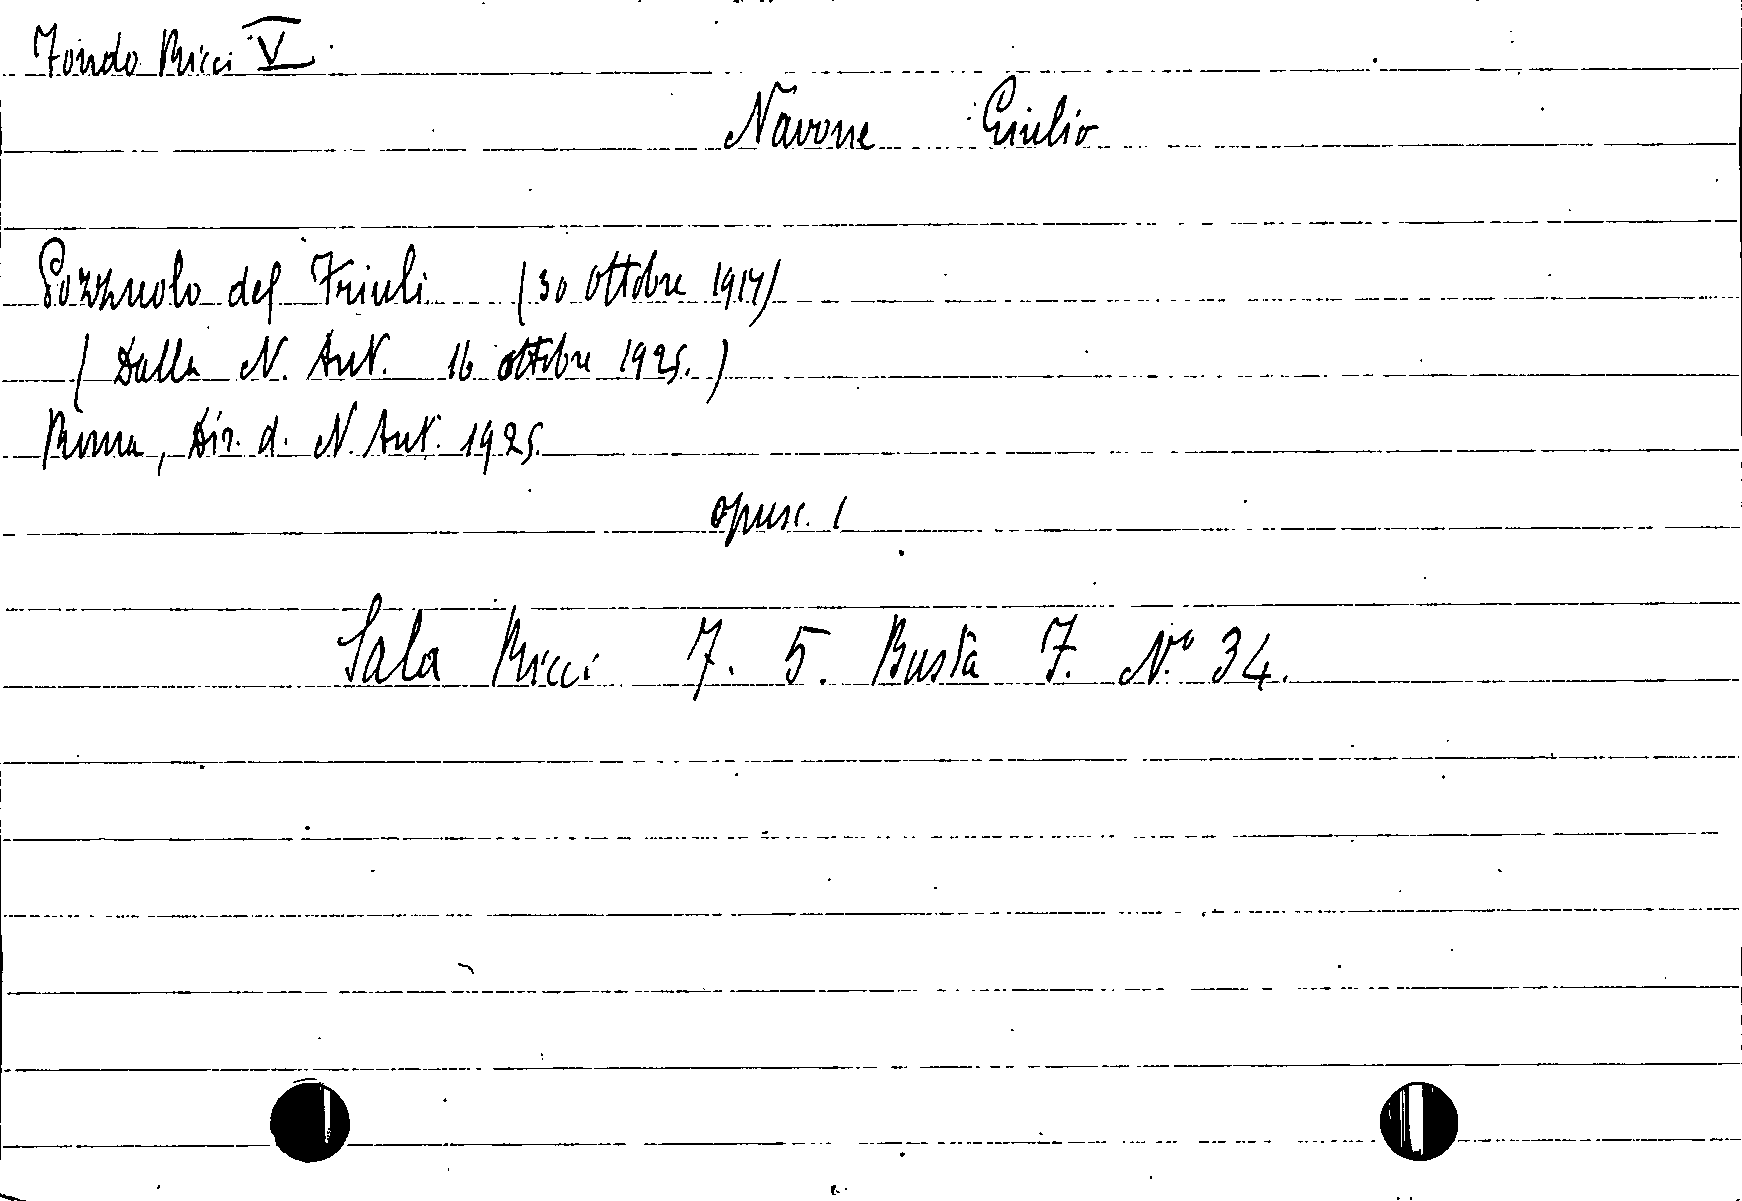 Fondo Ricci V
Navone Giulio
Pozzuolo del Friuli (30 ottobre 1917)
(Dalla N. Ant. 16 ottobre 1925.)
Roma, Dir. d. N. Ant. 1925.
opusc. 1
Sala Ricci 7. 5. Busta 7. N.º 34.